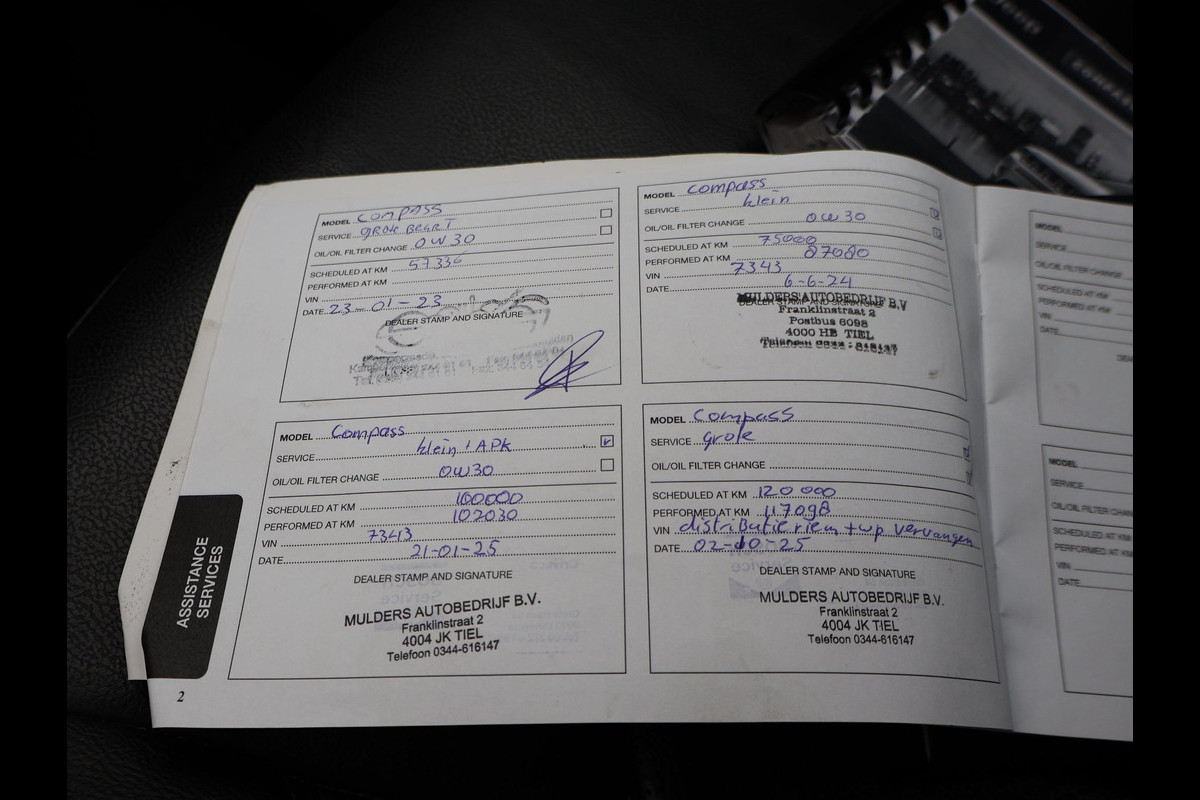 Jeep
MODEL Compass
SERVICE grote BEURT
OIL/OIL FILTER CHANGE 0W30
SCHEDULED AT KM 57336
PERFORMED AT KM
VIN
DATE 23-01-23
DEALER STAMP AND SIGNATURE
MODEL Compass
SERVICE klein
OIL/OIL FILTER CHANGE 0W30
SCHEDULED AT KM 75000
PERFORMED AT KM 87080
VIN 7343
DATE 6-6-24
DEALER STAMP AND SIGNATURE
MULDERS AUTOBEDRIJF B.V
Franklinstraat 2
Postbus 6098
4000 HB TIEL
MODEL Compass
SERVICE klein / APK
OIL/OIL FILTER CHANGE 0W30
SCHEDULED AT KM 100000
PERFORMED AT KM 102030
VIN 7343
DATE 21-01-25
DEALER STAMP AND SIGNATURE
MULDERS AUTOBEDRIJF B.V.
Franklinstraat 2
4004 JK TIEL
Telefoon 0344-616147
MODEL Compass
SERVICE grote
OIL/OIL FILTER CHANGE
SCHEDULED AT KM 120000
PERFORMED AT KM 117098
VIN distributie riem + wp vervangen
DATE 02-10-25
DEALER STAMP AND SIGNATURE
MULDERS AUTOBEDRIJF B.V.
Franklinstraat 2
4004 JK TIEL
Telefoon 0344-616147
ASSISTANCE
SERVICES
2
MODEL
SERVICE
OIL/OIL FILTER CHANGE
SCHEDULED AT KM
PERFORMED AT KM
VIN
DATE
MODEL
SERVICE
OIL/OIL FILTER CHANGE
SCHEDULED AT KM
PERFORMED AT KM
VIN
DATE